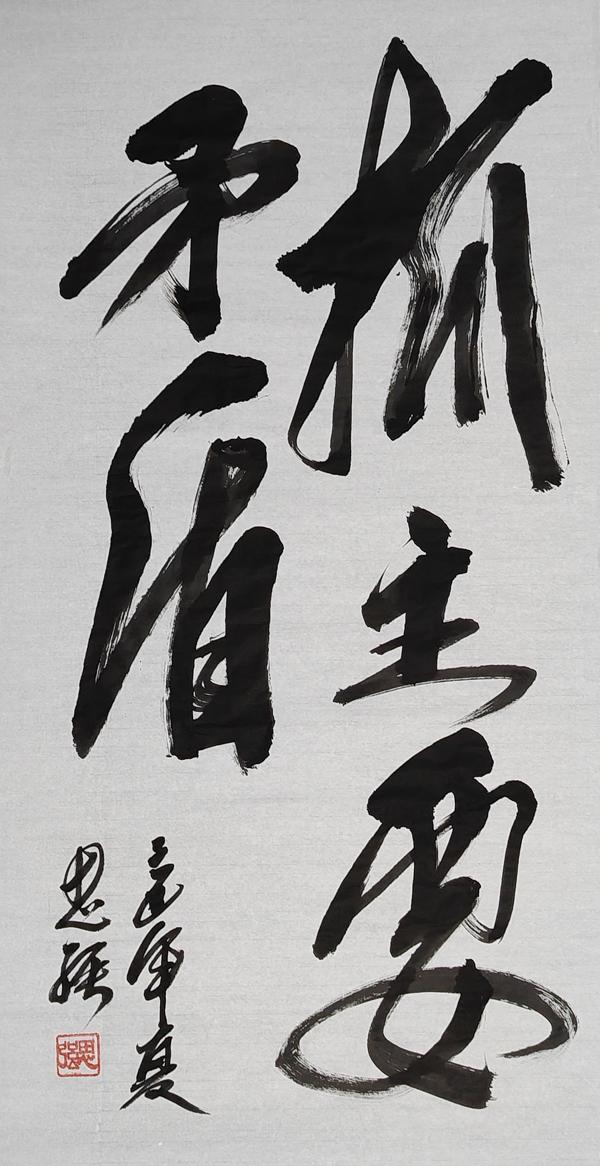 抓主要
矛盾
年夏
思强
思强